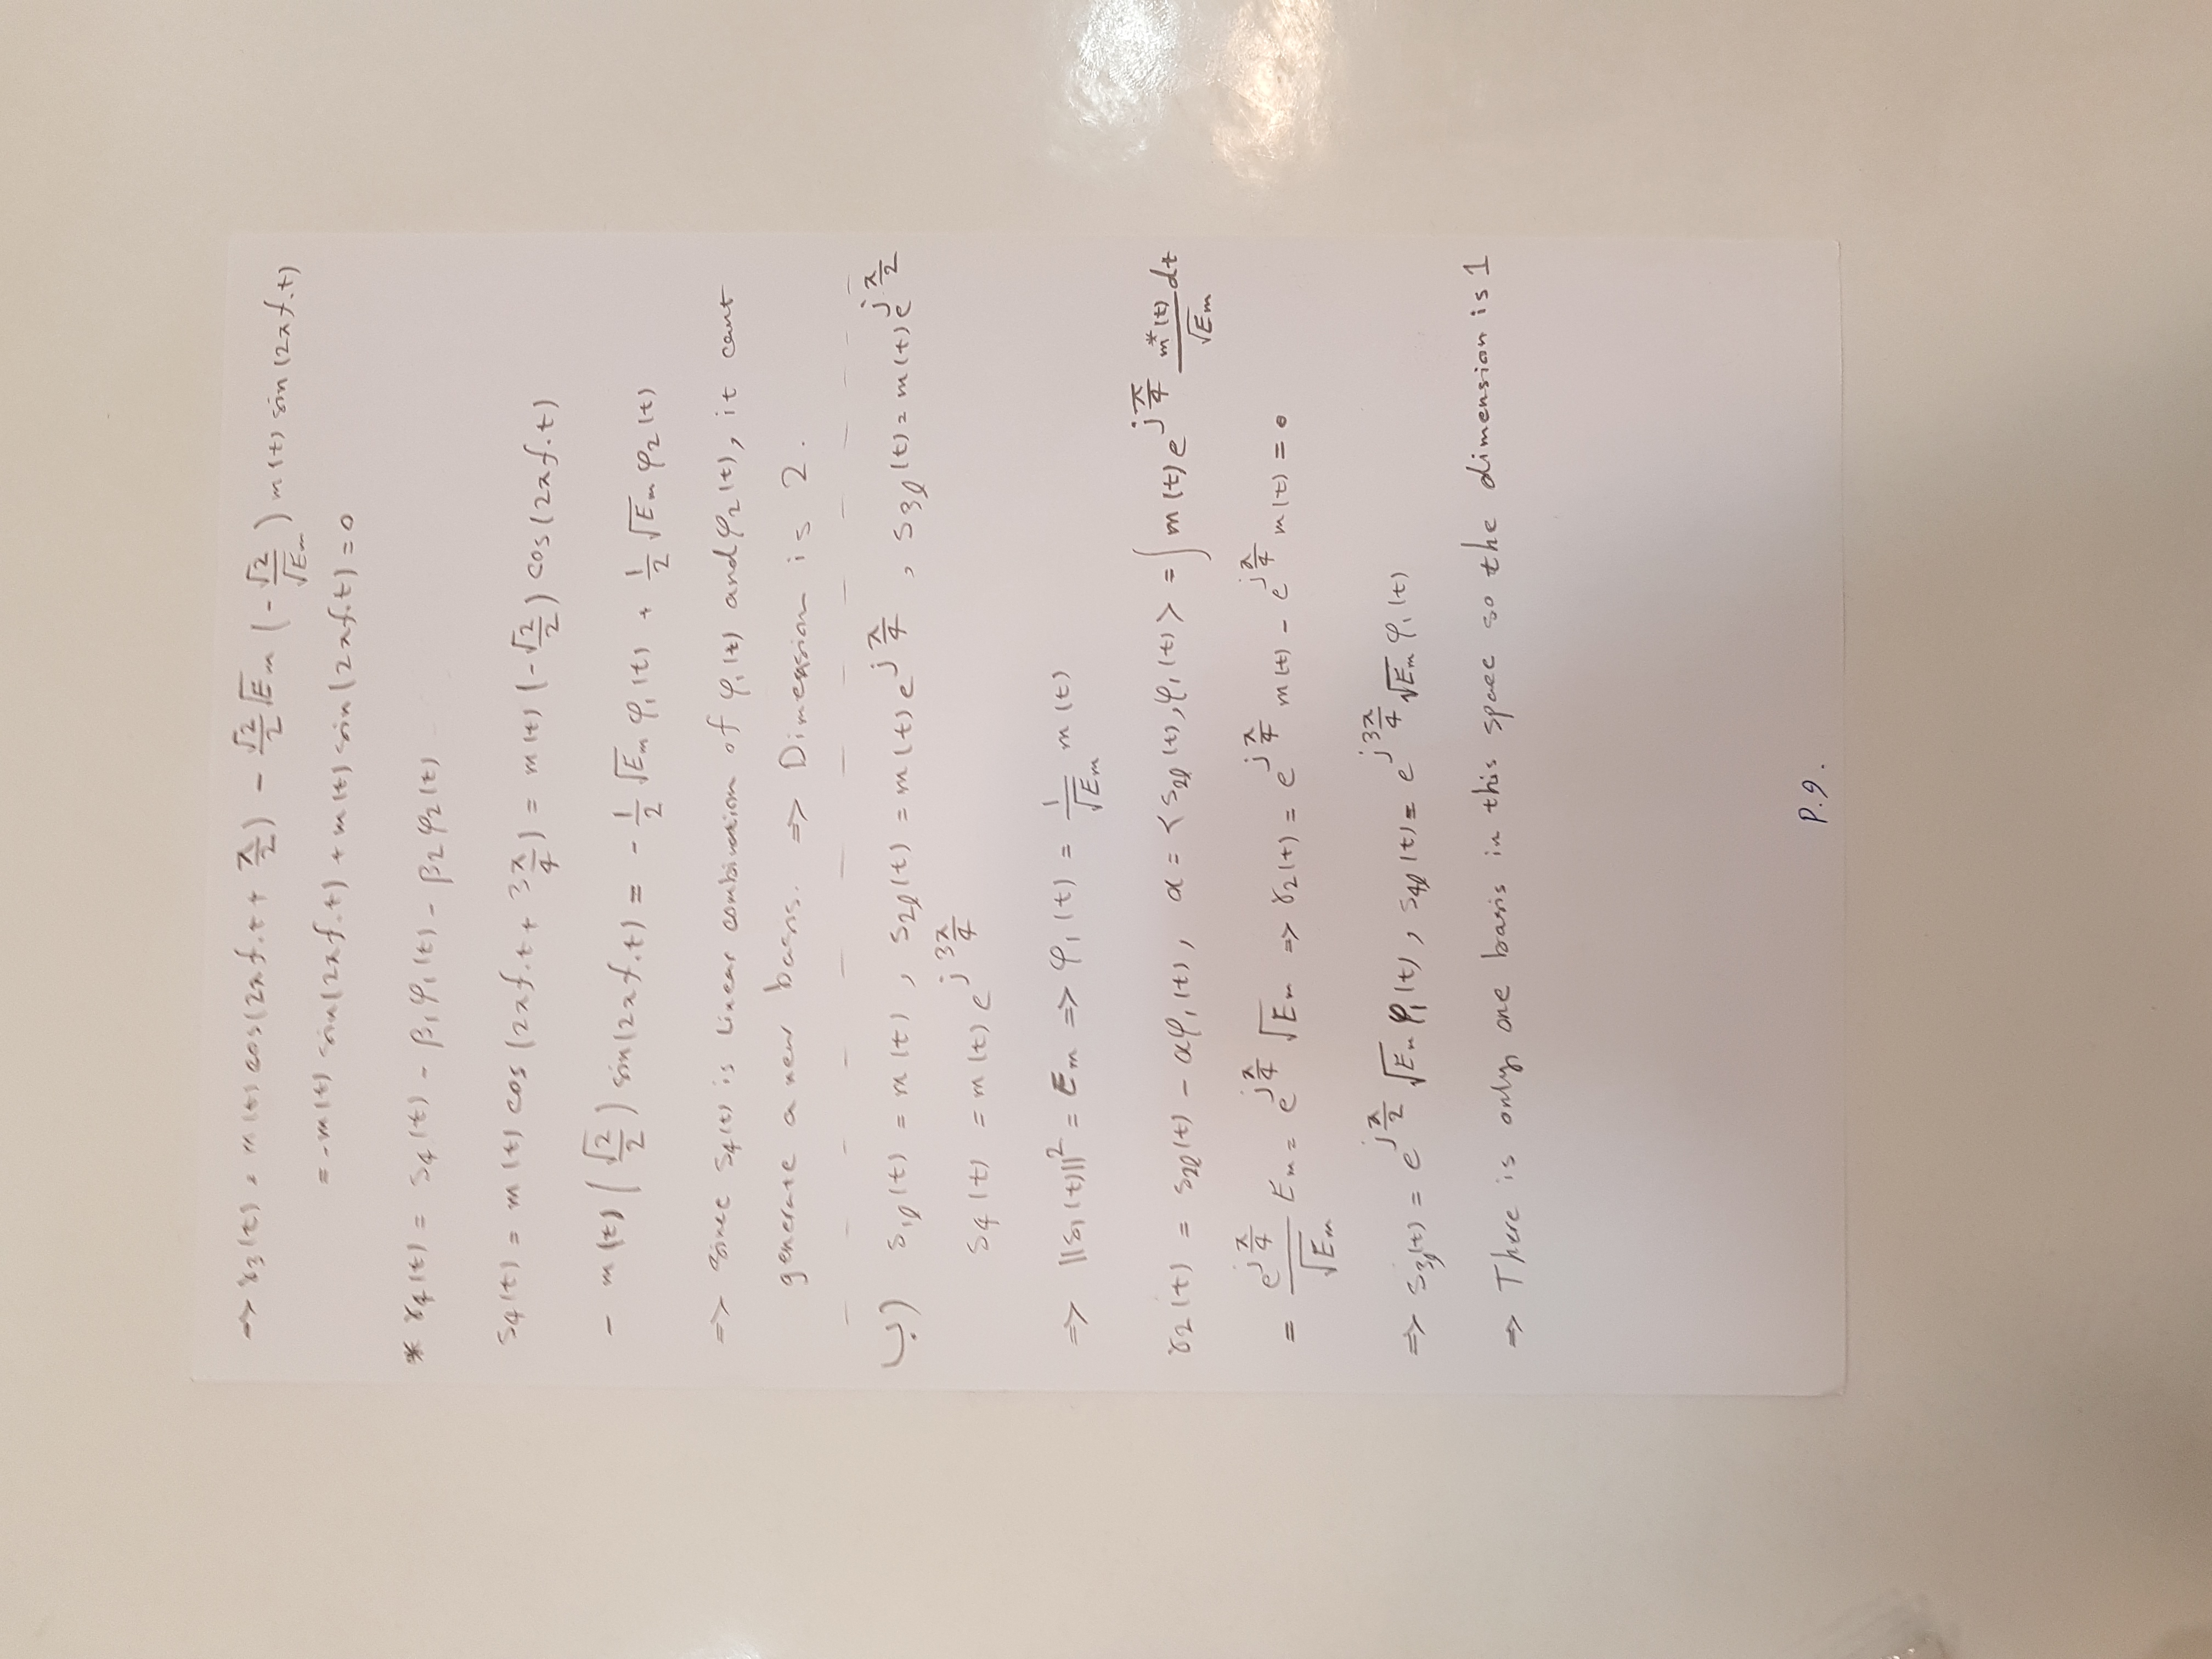 => γ3(t) = m(t) cos(2πf.t + π/2) - √2/2 √Em (-√2/√Em) m(t) sin(2πf.t)
= -m(t) sin(2πf.t) + m(t) sin(2πf.t) = 0
* γ4(t) = s4(t) - β1φ1(t) - β2φ2(t)
s4(t) = m(t) cos(2πf.t + 3π/4) = m(t) (-√2/2) cos(2πf.t)
- m(t) (√2/2) sin(2πf.t) = - 1/2 √Em φ1(t) + 1/2 √Em φ2(t)
=> since s4(t) is Linear combination of φ1(t) and φ2(t), it cant
generate a new basis. => Dimension is 2.
ب) s1l(t) = m(t), s2l(t) = m(t) e^(jπ/4), s3l(t) = m(t) e^(jπ/2)
s4(t) = m(t) e^(j3π/4)
=> ||s1(t)||² = Em => φ1(t) = 1/√Em m(t)
γ2(t) = s2l(t) - αφ1(t), α = <s2l(t), φ1(t)> = ∫ m(t) e^(jπ/4) m*(t)/√Em dt
= e^(jπ/4)/√Em Em = e^(jπ/4) √Em => γ2(t) = e^(jπ/4) m(t) - e^(jπ/4) m(t) = 0
=> s3l(t) = e^(jπ/2) √Em φ1(t), s4l(t) = e^(j3π/4) √Em φ1(t)
=> There is only one basis in this space so the dimension is 1
P.9.